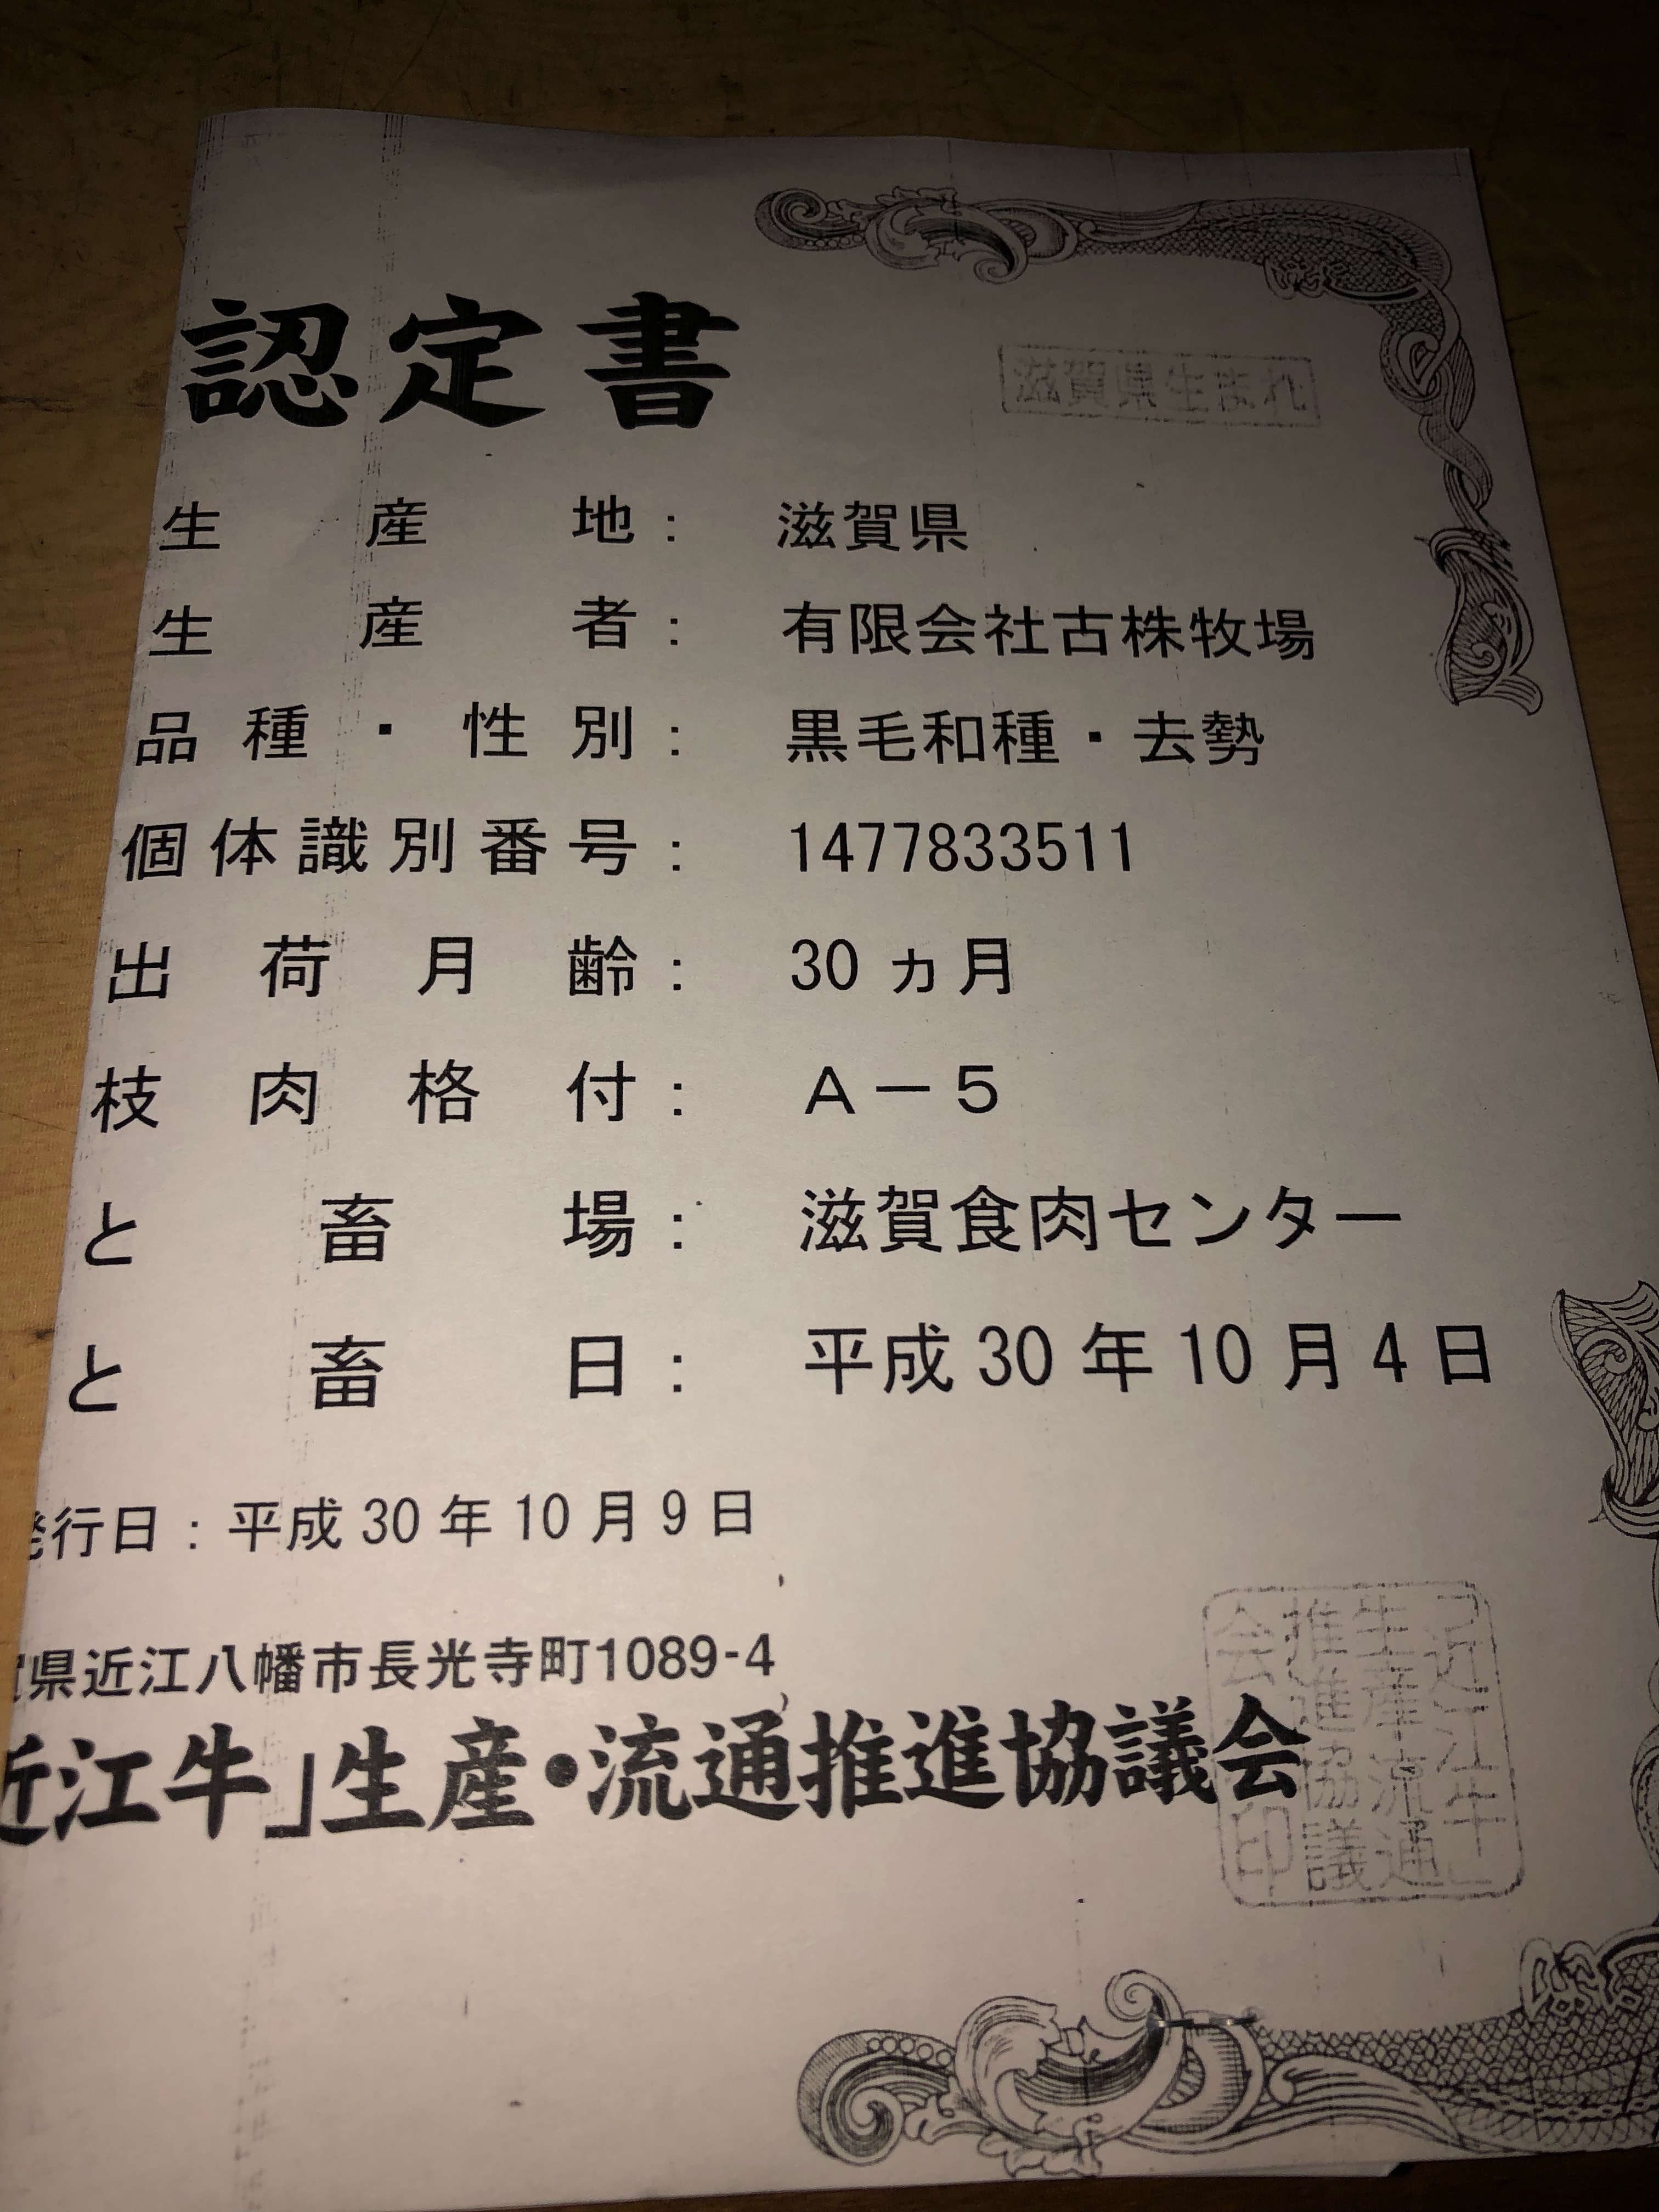 認定書
滋賀県生まれ
生産地： 滋賀県
生産者： 有限会社古株牧場
品種・性別： 黒毛和種・去勢
個体識別番号： 1477833511
出荷月齢： 30 ヵ月
枝肉格付： A－5
と畜場： 滋賀食肉センター
と畜日： 平成 30 年 10 月 4 日
発行日：平成 30 年 10 月 9 日
賀県近江八幡市長光寺町1089-4
近江牛」生産・流通推進協議会
近江牛
生産流通
推進協議
会印